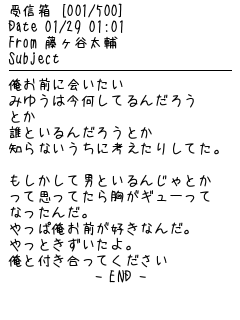 受信箱 [001/500]
Date 01/29 01:01
From 藤ヶ谷太輔
Subject
俺お前に会いたい
みゆうは今何してるんだろう
とか
誰といるんだろうとか
知らないうちに考えたりしてた。
もしかして男といるんじゃとか
って思ってたら胸がギューって
なったんだ。
やっぱ俺お前が好きなんだ。
やっときずいたよ。
俺と付き合ってください
- END -